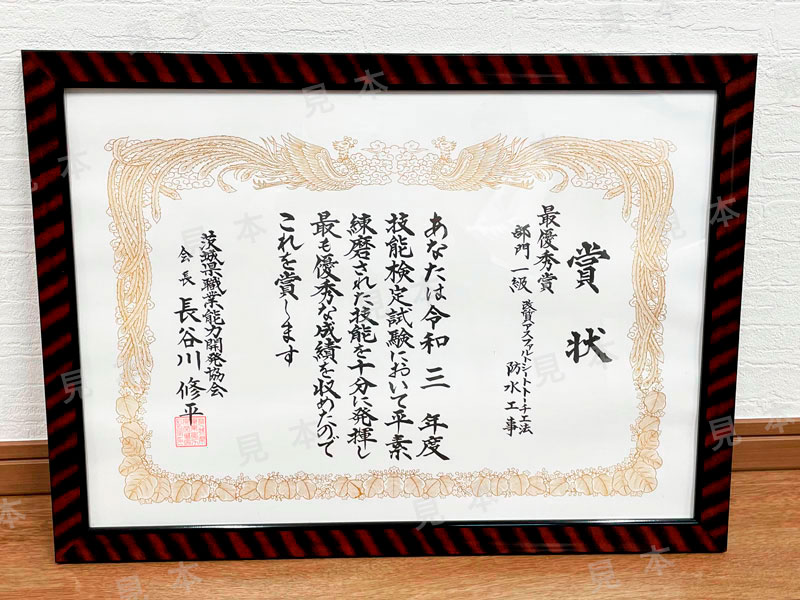 賞状
最優秀賞
部門 一級 改質アスファルトシートトーチ工法
防水工事
あなたは令和三年度
技能検定試験において平素
練磨された技能を十分に発揮し
最も優秀な成績を収めたので
これを賞します
茨城県職業能力開発協会
会長 長谷川修平
見本
見本
見本
見本
見本
見本
見本
見本
見本
見本
見本
見本
見本